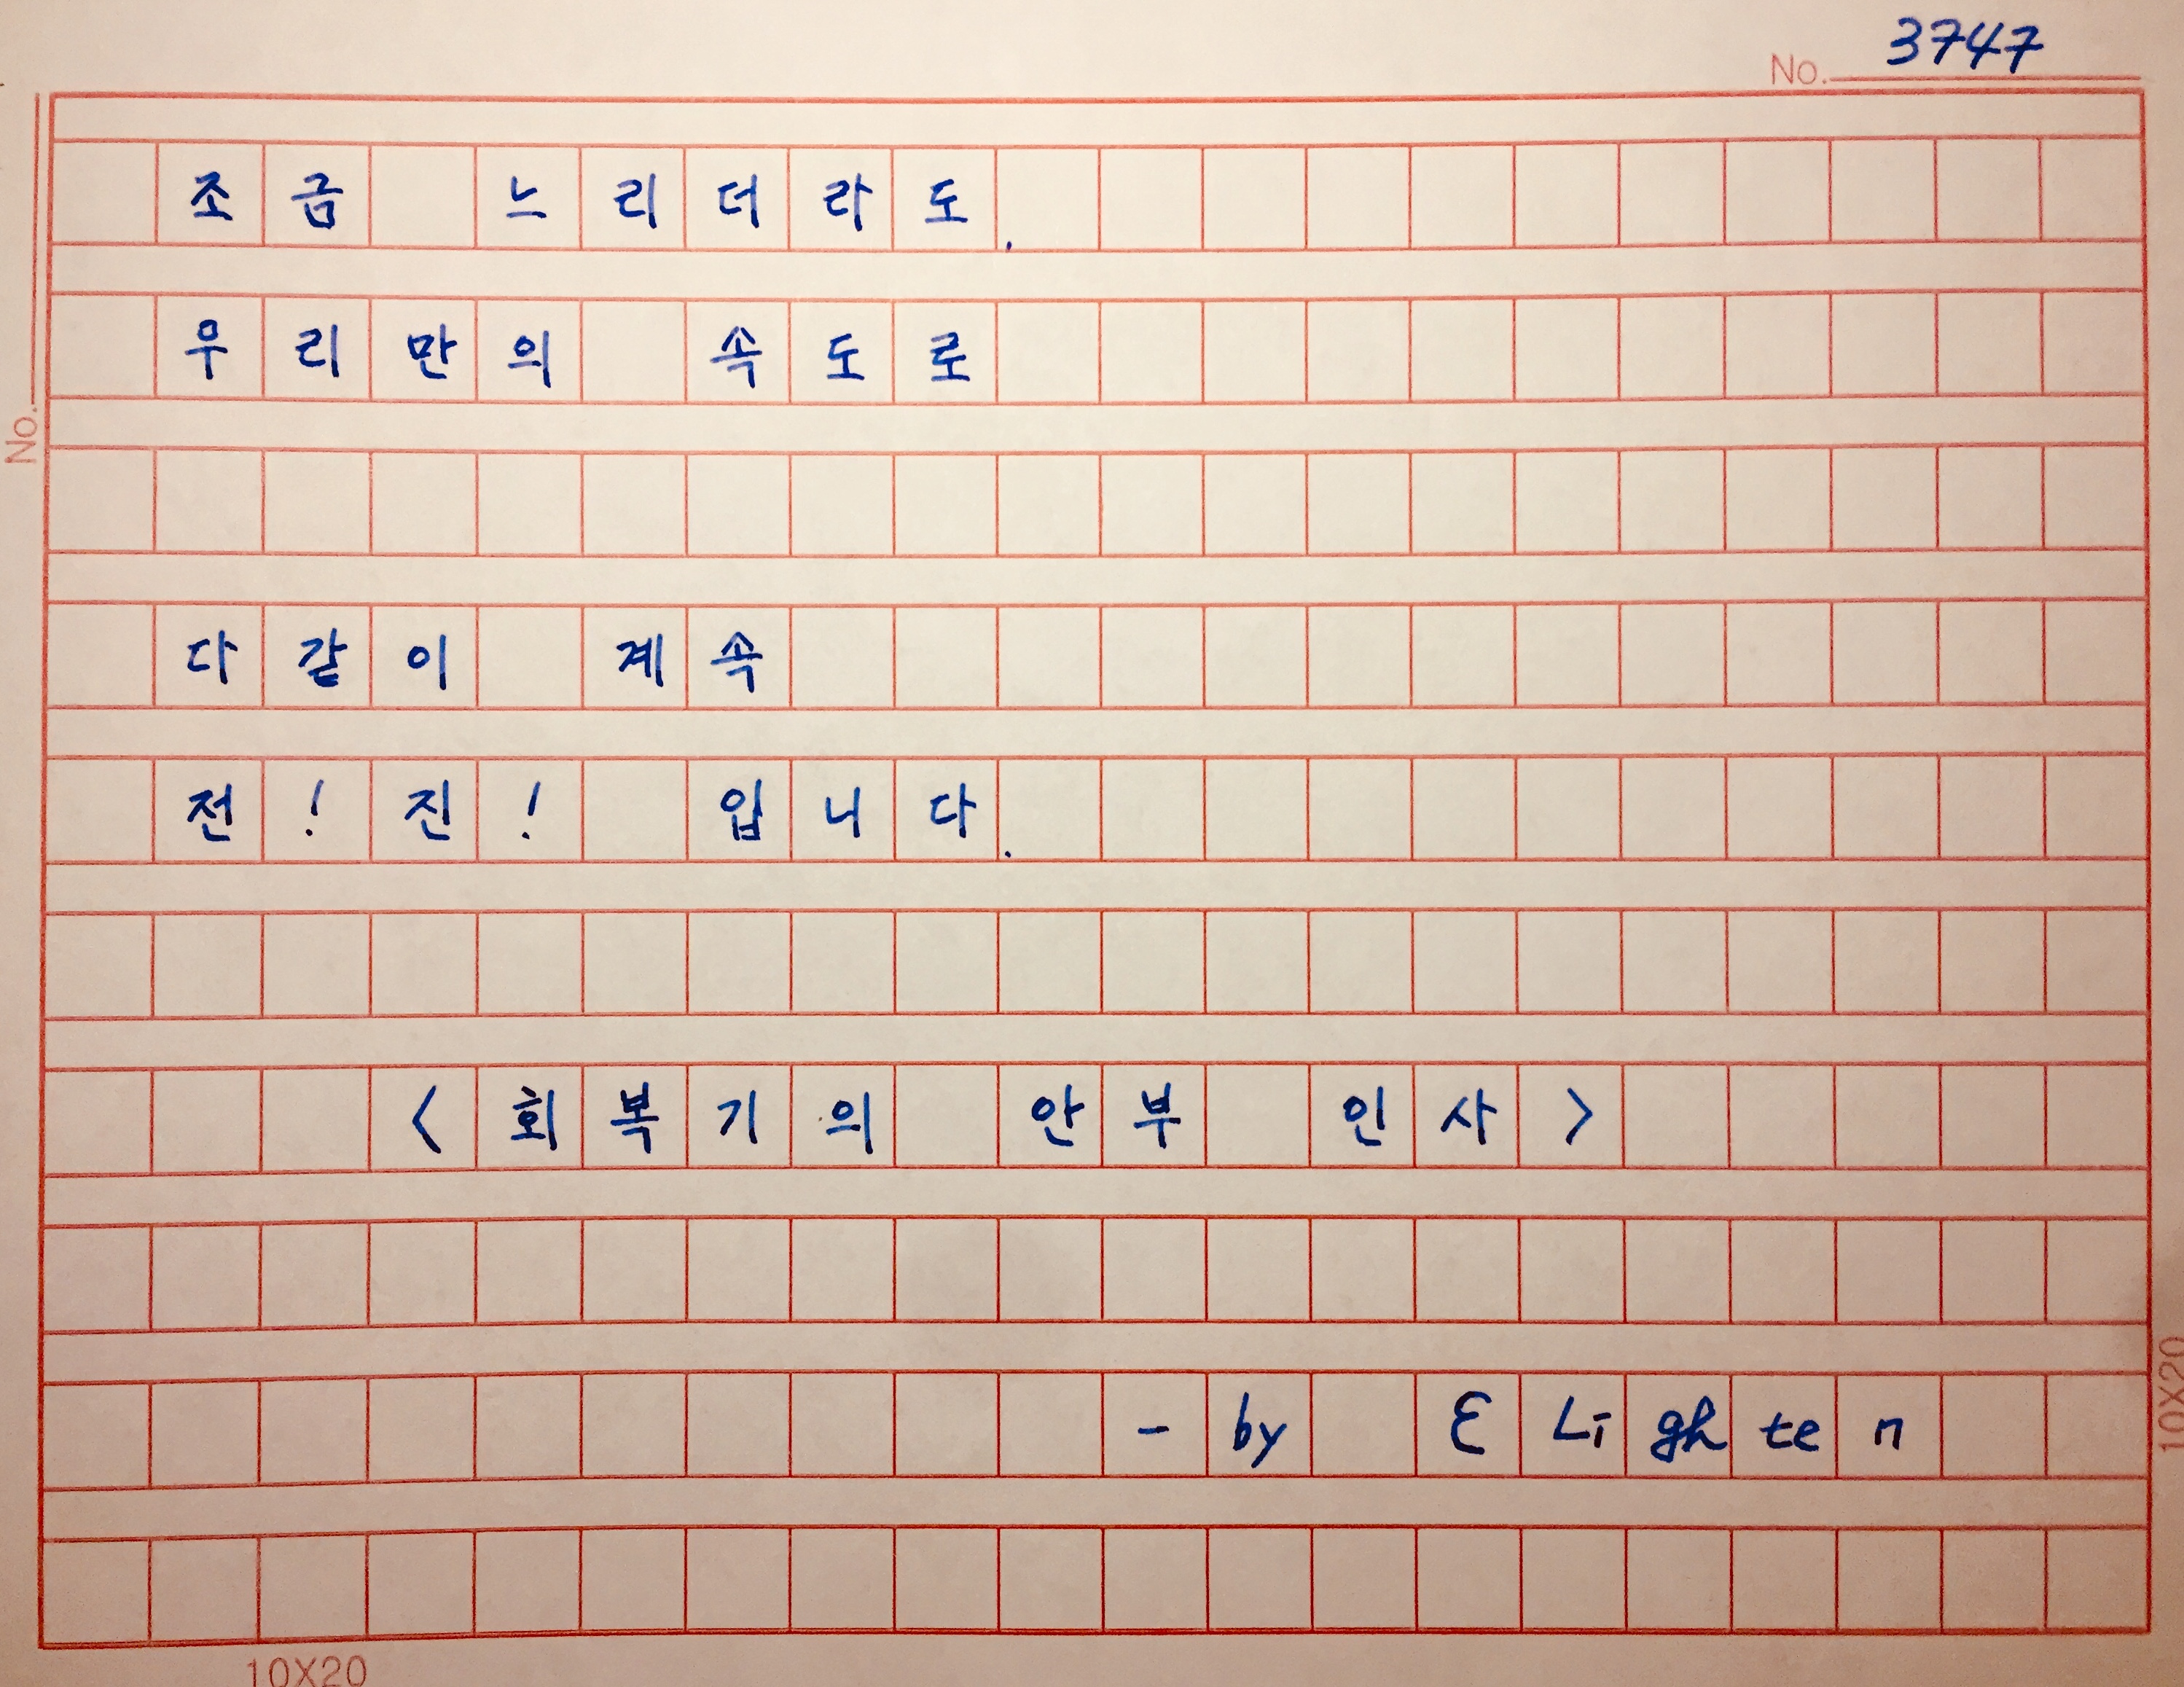 No. 3747
조금 느리더라도.
우리만의 속도로
No.
다같이 계속
전!진! 입니다.
<회복기의 안부 인사>
- by ELighten
10X20
10X20